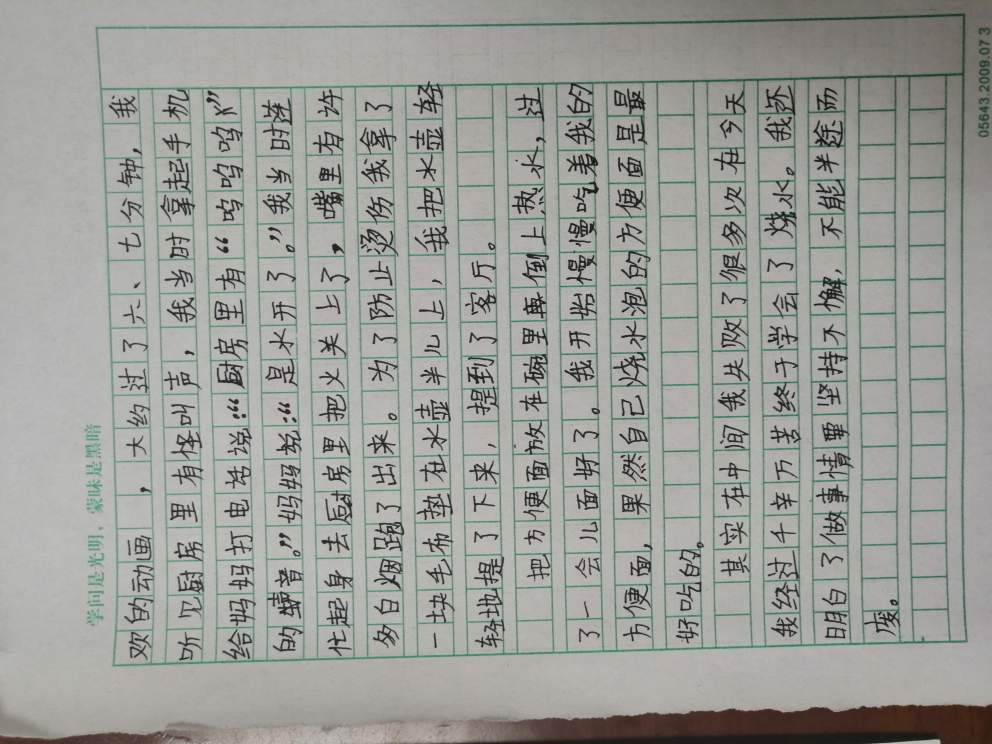 学问是光明，蒙昧是黑暗
欢的动画，大约过了六、七分钟，我
听见厨房里有怪叫声，我当时拿起手机
给妈妈打电话说：“厨房里有“呜呜呜”
的声音。”妈妈说：“是水开了。”我当时连
忙起身去厨房里把火关上了，嘴里有许
多白烟跑了出来。为了防止烫伤我拿了
一块毛布垫在水壶半儿上，我把水壶轻
轻地提了下来，提到了客厅。
把方便面放在碗里再倒上热水，过
了一会儿面好了。我开始慢慢吃着我的
方便面，果然自己烧水泡的方便面是最
好吃的。
其实在中间我失败了很多次在今天
我经过千辛万苦终于学会了烧水。我还
明白了做事情要坚持不懈，不能半途而
废。
05643.2009.07 3